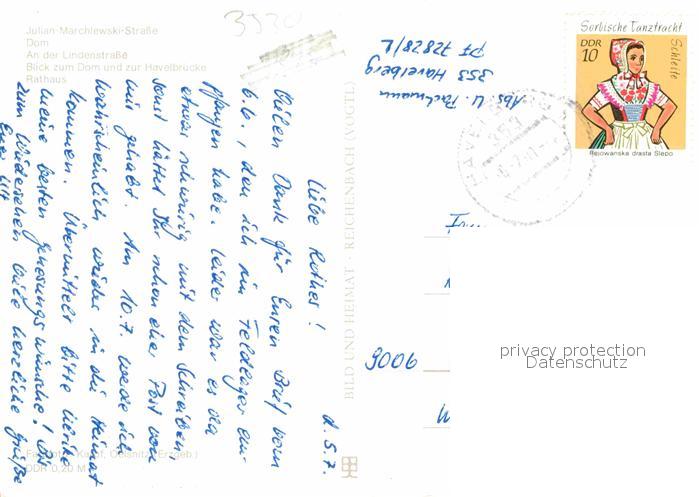 3530
Julian-Marchlewski-Straße
Dom
An der Lindenstraße
Blick zum Dom und zur Havelbrücke
Rathaus
d. 5.7.
Liebe Rothes!
Vielen Dank für Euren Brief vom
6.6., den ich im Feldlager em-
pfangen habe. Leider war es da
etwas schwierig mit dem Schreiben
sonst hättet Ihr schon eher Post von
mir gehabt. Am 10.7. werde ich
wahrscheinlich wieder in die Heimat
kommen. Übermittelt bitte
meine besten Genesungswünsche! Bis
zum Wiedersehen viele herzliche Grüße
Euer
Oelsnitz (Erzgeb.)
DDR 0,20 M
BILD UND HEIMAT · REICHENBACH
Abs. U.
353 Havelberg
PF 72828/L
Sorbische Tanztracht
DDR
10
Schleife
Rejowanska drasta Slepo
353
9006
privacy protection
Datenschutz